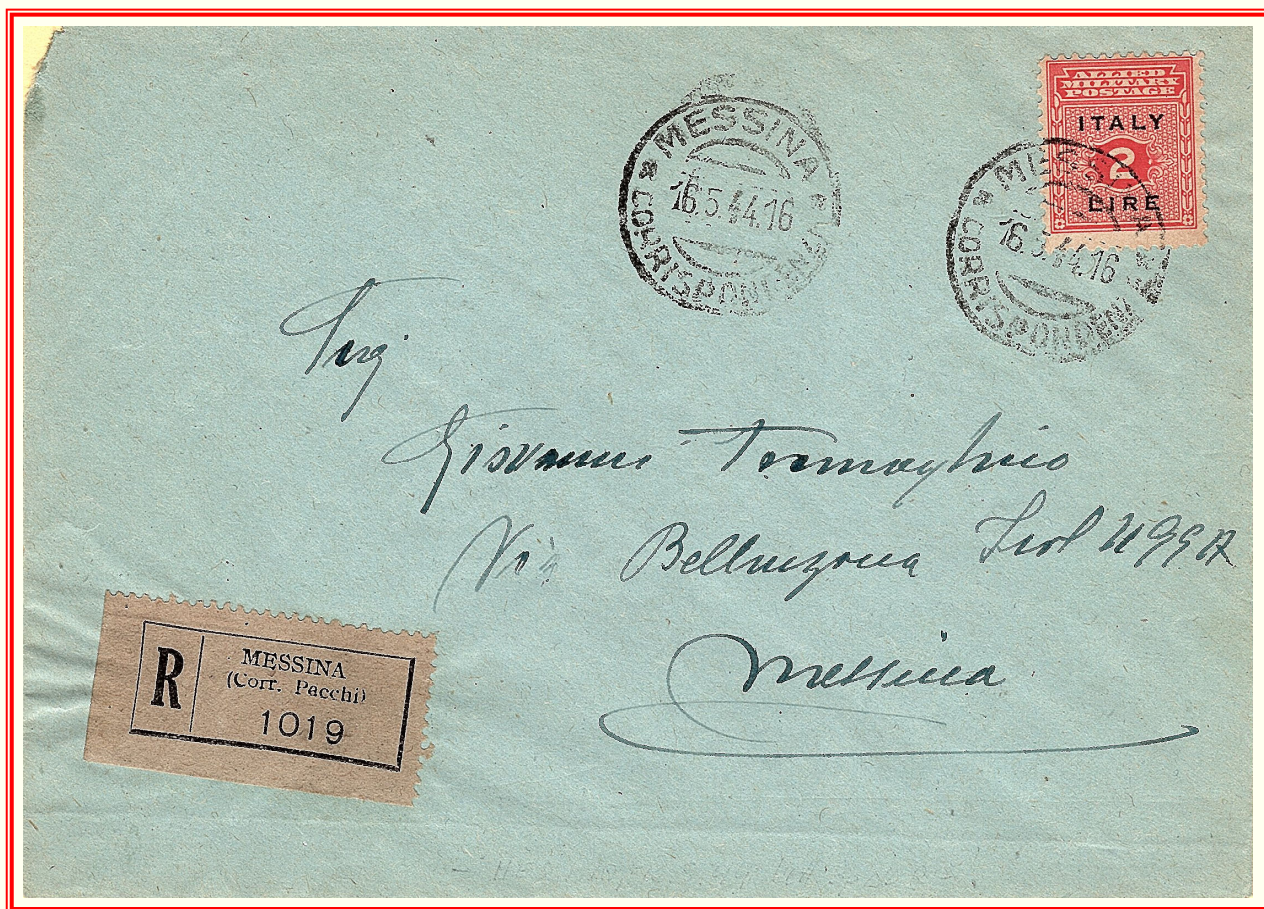 ALLIED
MILITARY
POSTAGE
ITALY
2
LIRE
* MESSINA *
16.5.44.16
CORRISPONDENZE
* MESSINA *
16.5.44.16
CORRISPONDENZE
Giovanni
Via Bellinzona Isol
Messina
R
MESSINA
(Corr. Pacchi)
1019